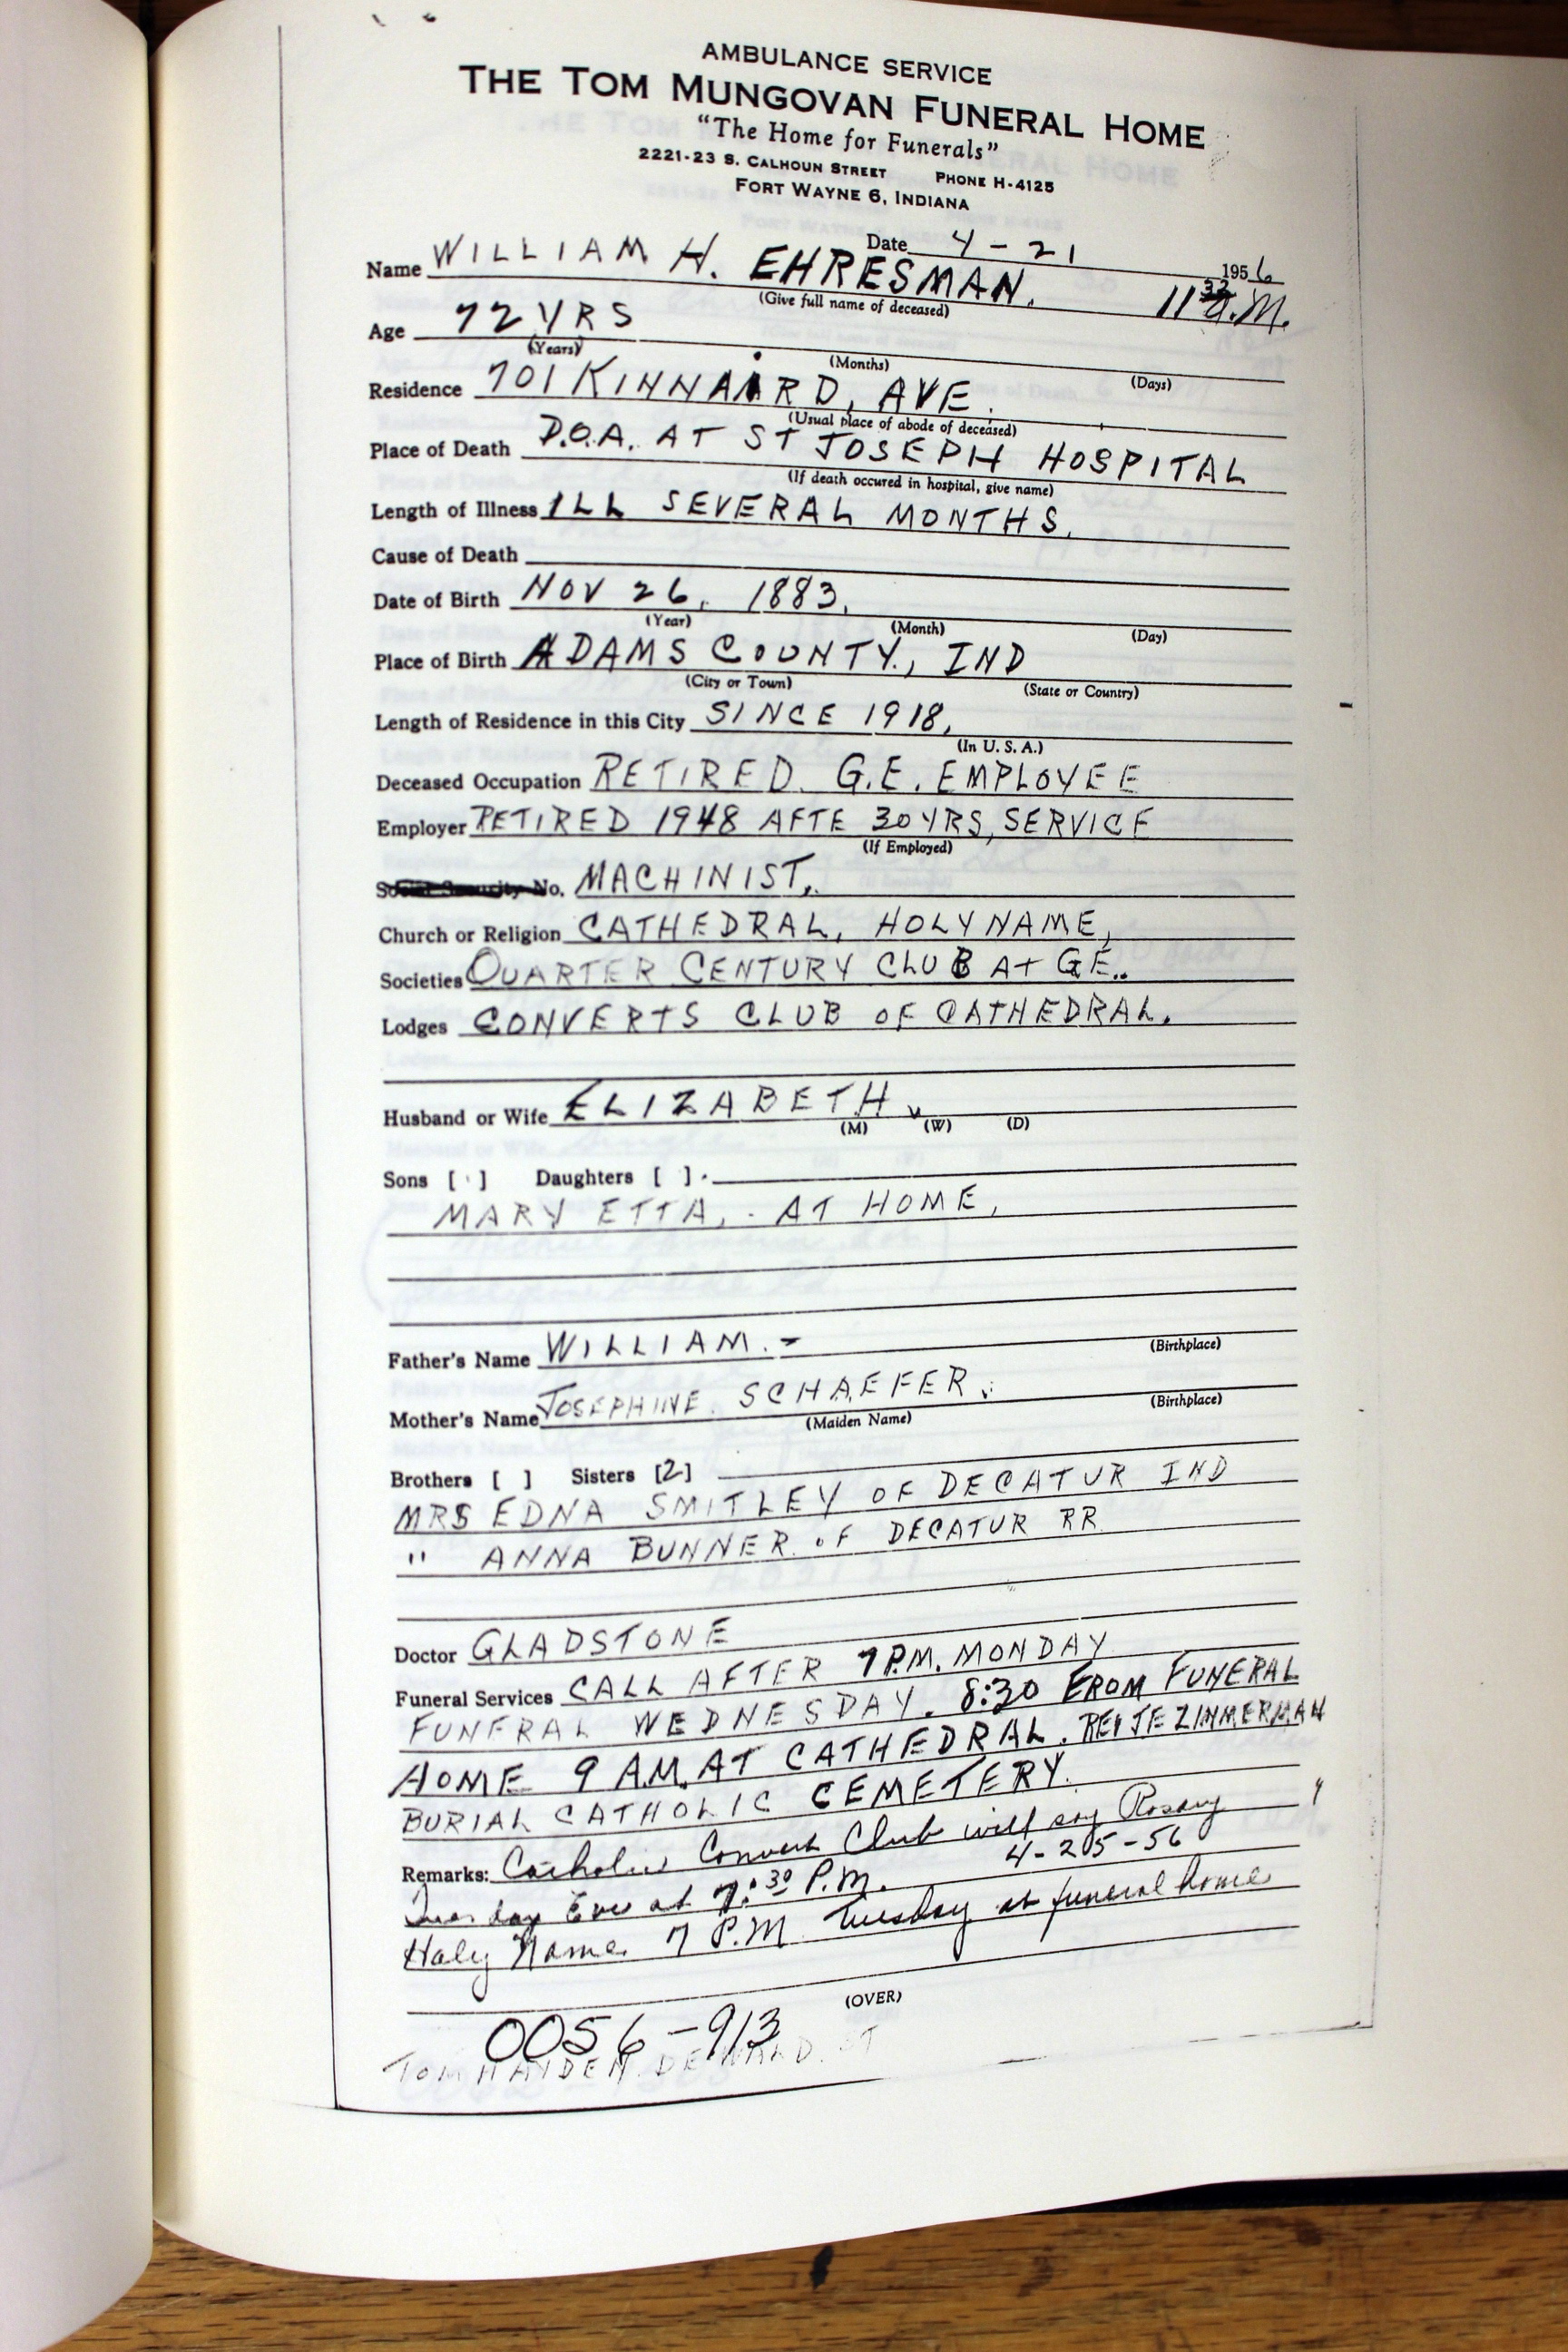 AMBULANCE SERVICE
THE TOM MUNGOVAN FUNERAL HOME
"The Home for Funerals"
2221-23 S. CALHOUN STREET PHONE H-4125
FORT WAYNE 6, INDIANA
Date 4-21 1956
Name WILLIAM H. EHRESMAN. 11 32 A.M.
(Give full name of deceased)
Age 72 YRS
(Years) (Months) (Days)
Residence 701 KINNAIRD, AVE.
(Usual place of abode of deceased)
Place of Death D.O.A. AT ST JOSEPH HOSPITAL
(If death occured in hospital, give name)
Length of Illness ILL SEVERAL MONTHS.
Cause of Death
Date of Birth NOV 26, 1883.
(Year) (Month) (Day)
Place of Birth ADAMS COUNTY., IND
(City or Town) (State or Country)
Length of Residence in this City SINCE 1918,
(In U. S. A.)
Deceased Occupation RETIRED G.E. EMPLOYEE
Employer RETIRED 1948 AFTE 30 YRS, SERVICE
(If Employed)
Social Security No. MACHINIST,.
Church or Religion CATHEDRAL, HOLY NAME,
Societies QUARTER CENTURY CLUB AT G.E..
Lodges CONVERTS CLUB OF CATHEDRAL.
Husband or Wife ELIZABETH.
(M) (W) (D)
Sons [ ] Daughters [ ]
MARY ETTA, - AT HOME,
Father's Name WILLIAM. -
(Birthplace)
Mother's Name JOSEPHINE SCHAEFER.
(Maiden Name) (Birthplace)
Brothers [ ] Sisters [2]
MRS EDNA SMITLEY OF DECATUR IND
" ANNA BUNNER OF DECATUR RR
Doctor GLADSTONE
Funeral Services CALL AFTER 7 P.M. MONDAY
FUNERAL WEDNESDAY. 8:30 FROM FUNERAL
HOME 9 A.M. AT CATHEDRAL. REV JE ZIMMERMAN
BURIAL CATHOLIC CEMETERY.
Remarks: Catholic Convert Club will say Rosary
4-25-56
Tuesday Eve at 7:30 P.M.
Holy Name 7 P.M Tuesday at funeral home
(OVER)
0056-913
TOM HAYDEN